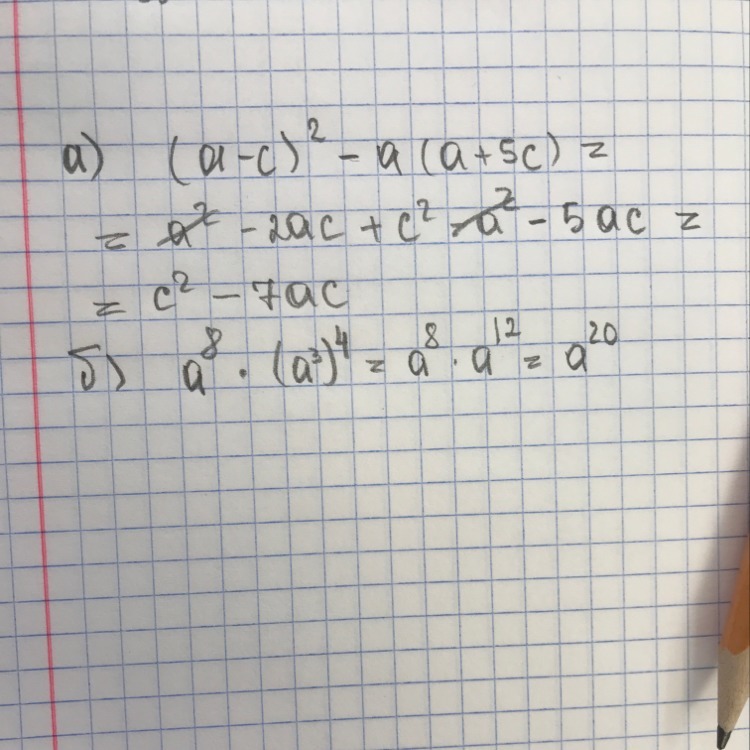 а) (a-c)² - a(a+5c) =
= a² - 2ac + c² - a² - 5ac =
= c² - 7ac
б) a⁸ · (a³)⁴ = a⁸ · a¹² = a²⁰